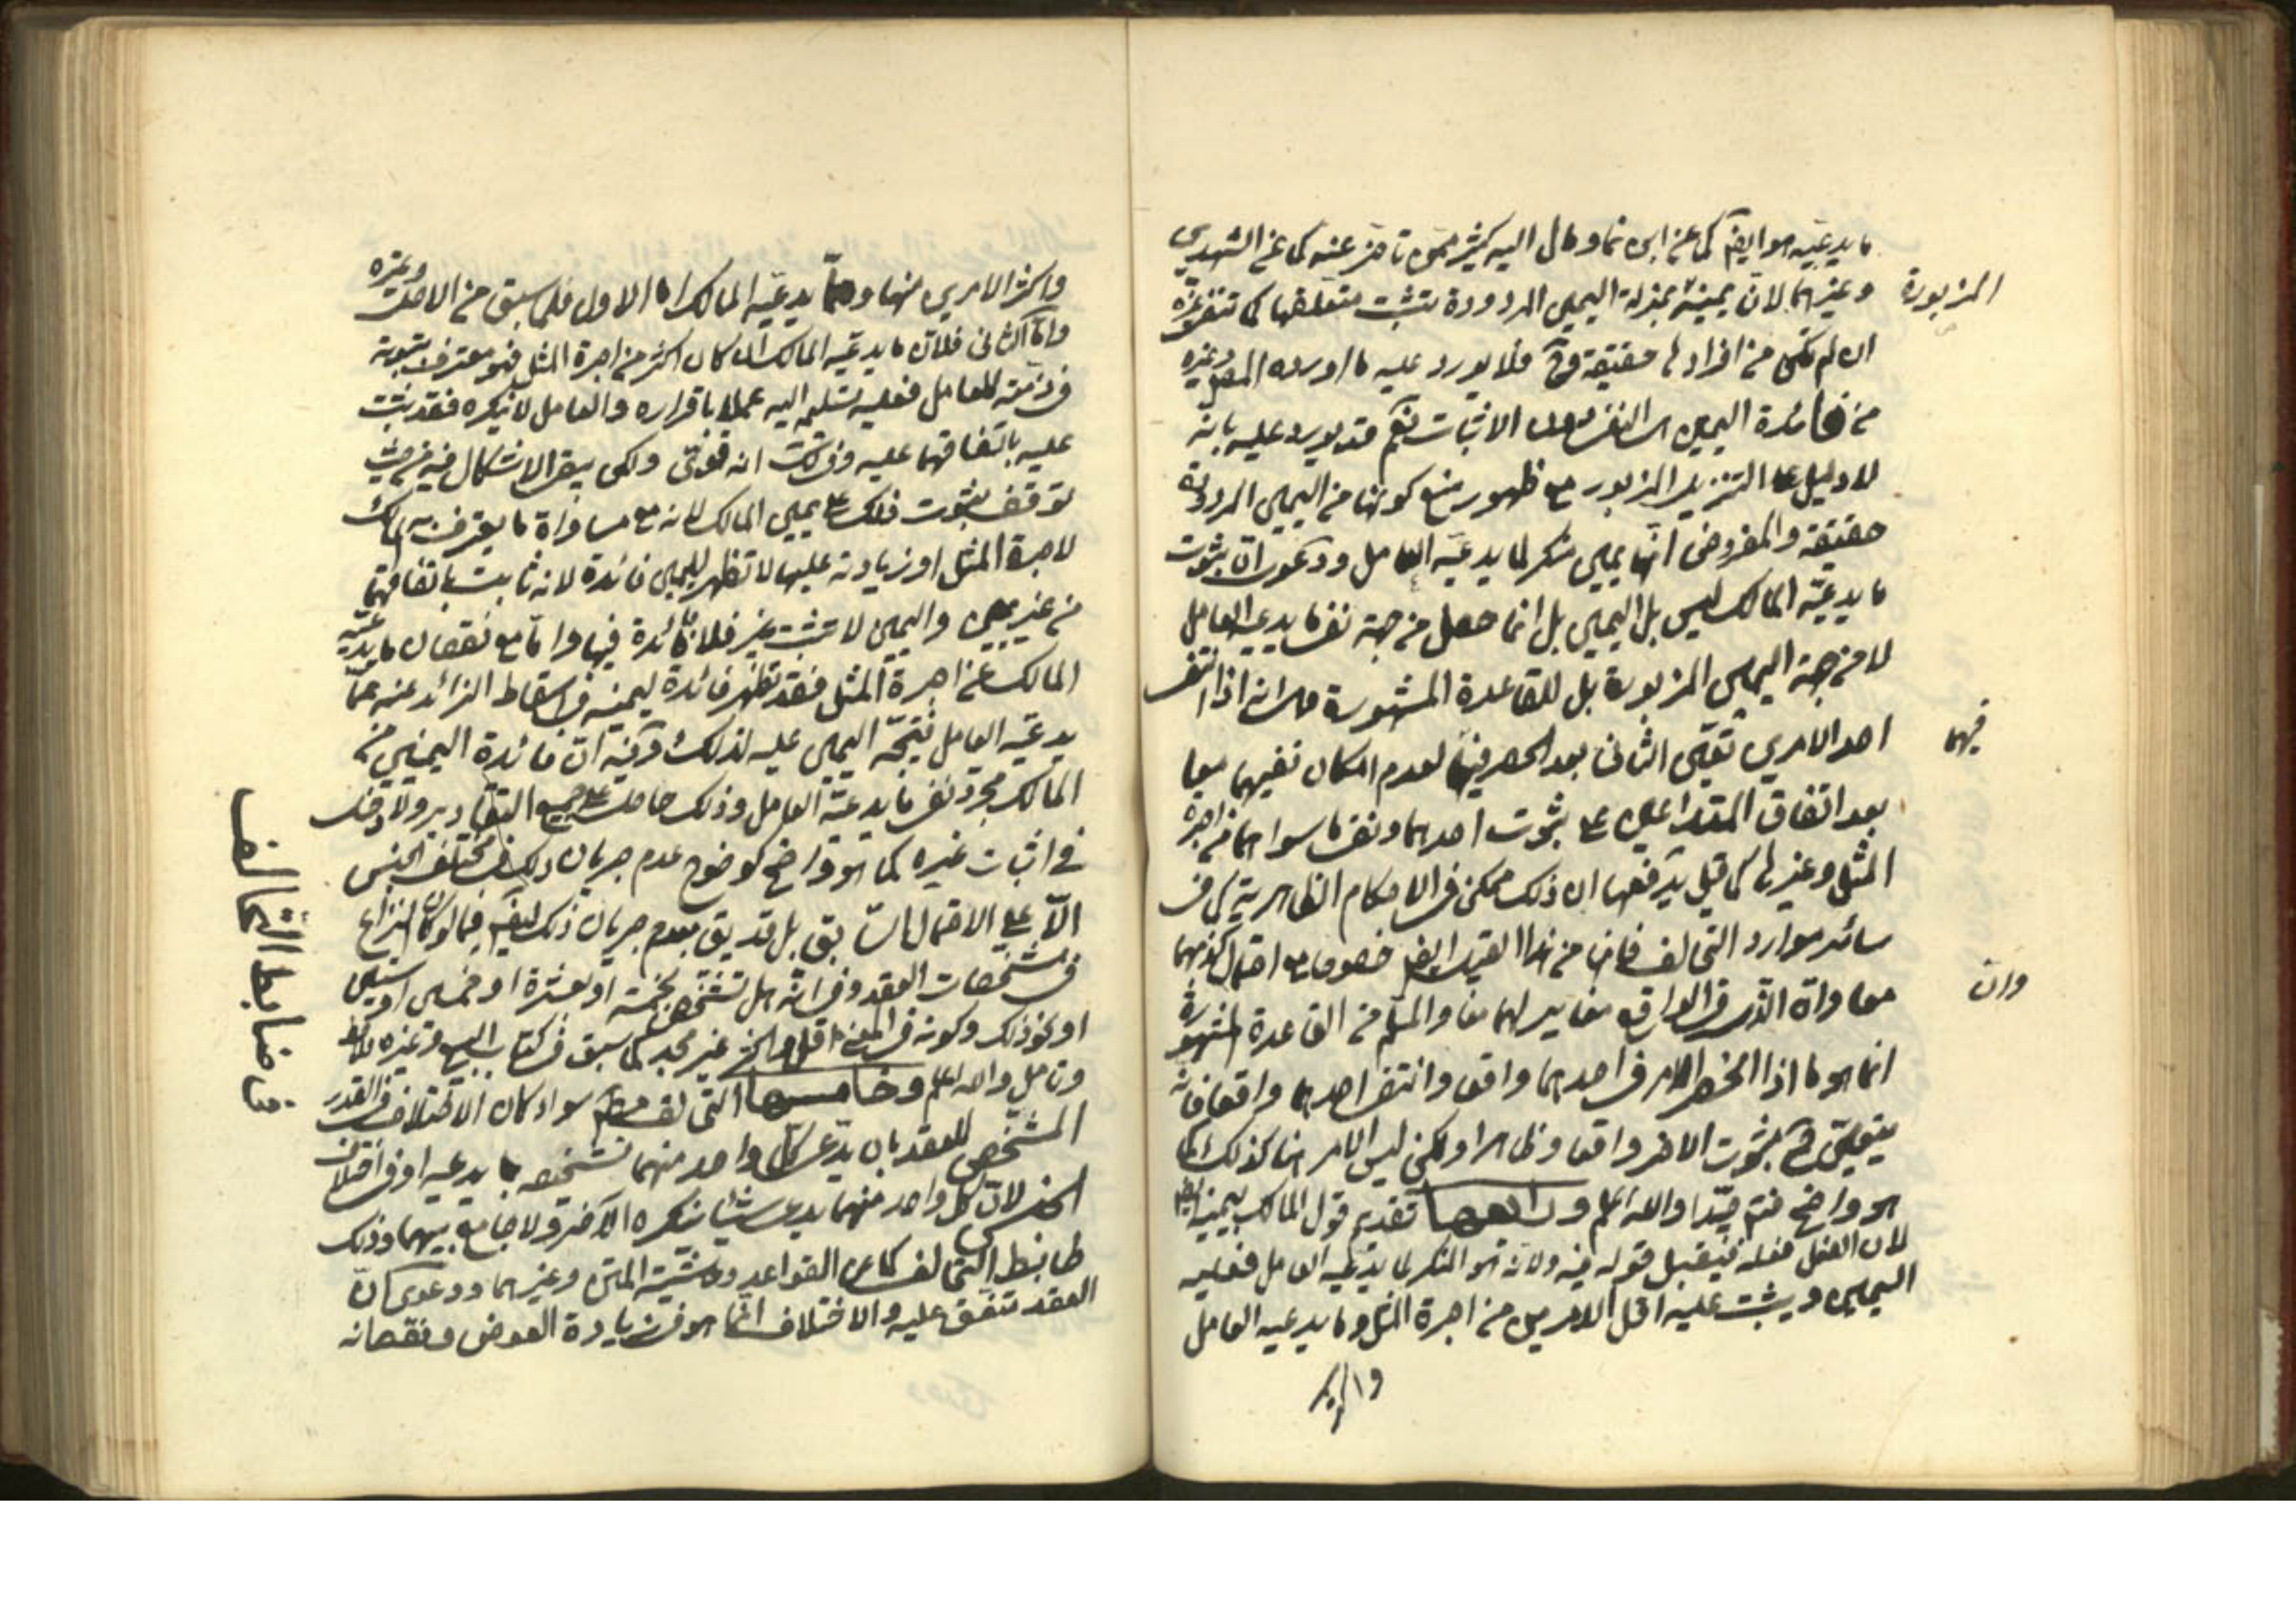 ما يدعيه هو ايضا كما عن ابن نما ومال اليه كثير ممن تاخر عنه كما عن الشهيدين
وغيرهما لان يمينه بمنزلة اليمين المردودة يثبت متعلقها كما تنفي غيره
المزبورة
ان لم تكن من افرادها حقيقة وح فلا يورد عليه ما اورده وغيره
من فائدة اليمين النفي دون الاثبات نعم قد يورد عليه بانه
لا دليل على التنزيل المزبور مع ظهور منع كونها من اليمين المردودة
حقيقة والمفروض انها يمين منكر لما يدعيه العامل ودعوى ان ثبوت
ما يدعيه المالك ليس باليمين بل انما حصل من جهة نفي ما يدعيه العامل
لا من جهة اليمين المزبورة بل للقاعدة المشهورة من انه اذا انتفى
احد الامرين تعين الثاني بعد الحصر فيهما لعدم امكان نفيهما معا
فيهما
بعد اتفاق المتداعيين على ثبوت احدهما ونفي ما سواهما من اجرة
المثل وغيرها كما قيل يدفعها ان ذلك ممكن في الاحكام الظاهرية كما في
سائر موارد التحالف فانها من هذا القبيل ايضا خصوصا مع احتمال كذبهما
معا وان الذي في الواقع مغاير لهما معا والمسلم من القاعدة المشهورة
وان
انما هو ما اذا انحصر الامر في احدهما واقعا وانتفى احدهما واقعا فانه
يتعين ح ثبوت الاخر واقعا وظاهرا ولكن ليس الامر هنا كذلك كما
هو واضح فتم جيدا والله اعلم ورابعها تقديم قول المالك بيمينه ايضا
لان الفعل فعله فيقبل قوله فيه ولانه هو المنكر لما يدعيه العامل فعليه
اليمين ويثبت عليه اقل الامرين من اجرة المثل وما يدعيه العامل
واكثر
واكثر الامرين منها ومما يدعيه المالك اما الاول فلما سبق من الاصل وغيره
واما الثاني فلان ما يدعيه المالك ان كان اكثر من اجرة المثل فهو معترف بثبوته
في ذمته للعامل فعليه تسليمه اليه عملا باقراره والعامل لا ينكره فقد ثبت
عليه باتفاقهما عليه وفي لك انه قوي ولكن يبقى الاشكال فيه من حيث
توقف ثبوت ذلك على يمين المالك لانه مع مساواة ما يعترف به المالك
لاجرة المثل او زيادته عليها لا تظهر لليمين فائدة لانه ثابت باتفاقهما
من غير يمين واليمين لا تثبت غيره فلا فائدة فيها واما مع نقصان ما يدعيه
المالك عن اجرة المثل فقد تظهر فائدة ليمينه في اسقاط الزائد عنه مما
يدعيه العامل فتتجه اليمين عليه لذلك وفيه ان فائدة اليمين من
المالك مجرد نفي ما يدعيه العامل وذلك حاصل على جميع التقادير ولا دخل
في اثبات غيره كما هو واضح كوضوح عدم جريان ذلك في مختلف الجنس
الا على الاحتمال السابق بل قد يق بعدم جريان ذلك ايضا فيما لو كان النزاع
في مشخصات العقد وفي انه هل تشخص بخمسة او بعشرة او خمسين او ستين
او نحو ذلك وكونه في المعنى اقل واكثر غير مجد كما سبق في كتاب البيع وغيره
وتامل والله اعلم وخامسها التحالف مطلقا سواء كان الاختلاف في القدر
المشخص للعقد بان يدعي كل واحد منهما تشخصه بما يدعيه او في اختلاف
الجنس لان كل واحد منهما يدعي شيئا ينكره الاخر ولا جامع بينهما وذلك
ضابط التحالف كما عن القواعد وحاشية المتن وغيرهما ودعوى كان
العقد متفق عليه والاختلاف انما هو في زيادة العوض ونقصانه
في ضابط التحالف